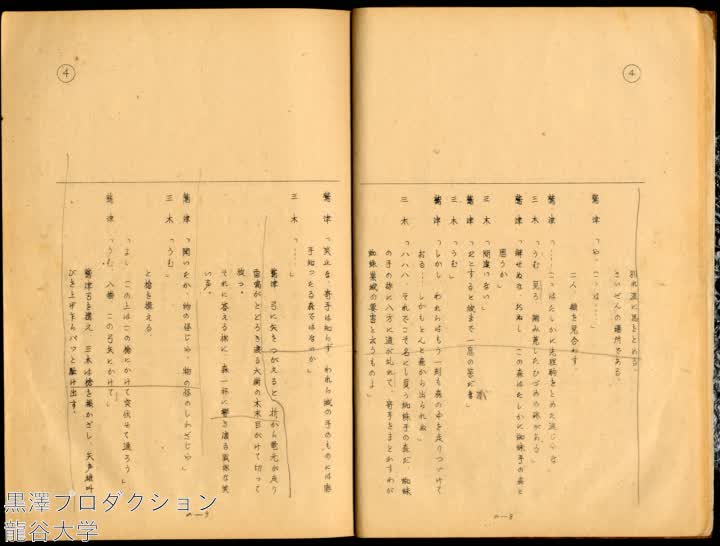 ④
別れ道に馬をとめる。
さいぜんの場所である。
鷲津「や、こゝは……」
二人、顔を見合わす。
鷲津「……こゝはたしかに先程駒をとめた道じゃな」
三木「うむ 見ろ、踏み荒したひづめの跡がある」
鷲津「解せぬな、おぬし、この森はたしかに蜘蛛手の森と
思うか」
三木「間違いない」
鷲津「だとすると城まで一息の筈だ」
三木「うむ」
鷲津「しかし、われらはもう一刻も森の中を走りつゞけて
おる……しかもとんと森から出られぬ」
三木「ハハハ、それでこそ名にし負う蜘蛛手の森だ、蜘蛛
の手の様に八方に道が乱れて、寄手をまどわすわが
蜘蛛巣城の要害と云うものよ」
④
鷲津「笑止な、寄手は知らず、われら城の手のものには
手知ったる森ではないか」
三木「……」
鷲津、弓に矢をつがえると、折から電光が走り
雷鳴がとどろき渡る大樹の木末目がけて切って
放つ。
それに答える様に、森一杯に響き渡る気味な笑
い声。
鷲津「聞いたか、物の怪じゃ、物の怪のしわざじゃ」
三木「うむ」
と槍を構える。
鷲津「よし、この上はこの槍にかけて突伏せて通ろう」
鷲津「うむ、八幡、この弓矢にかけて」
鷲津弓を構え、三木は槍を振かざし、矢声雄叫
びを上げ乍らパッと駈け出す。
黒澤プロダクション
龍谷大学